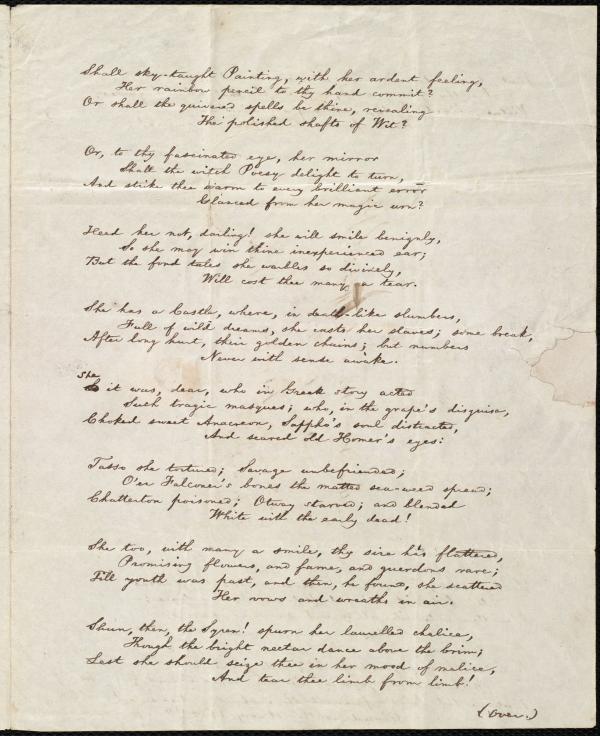 Shall sky-taught Painting, with her ardent feeling,
Her rainbow pencil to thy hand commit?
Or shall the quivered spells be thine, revealing
The polished shafts of Wit?
Or, to thy fascinated eye, her mirror
Shall the witch Poesy delight to turn,
And strike thee warm to every brilliant error
Glanced from her magic urn?
Heed her not, darling! she will smile benignly,
So she may win thine inexperienced ear;
But the fond tales she warbles so divinely,
Will cost thee many a tear.
She has a Castle, where, in death-like slumbers,
Full of wild dreams, she casts her slaves; some break,
After long hurt, their golden chains; but numbers
Never with sense awake.
She
it was, dear, who in Greek story acted
Such tragic masques; who, in the grape's disguise,
Choked sweet Anacreon, Sappho's soul distracted,
And seared old Homer's eyes:
Tasso she tortured; Savage unbefriended;
O'er Falconer's bones the matted sea-weed spread;
Chatterton poisoned; Otway starved; and blended
White with the early dead!
She too, with many a smile, thy sire hath flattered,
Promising flowers, and fame, and guerdons rare;
Till youth was past, and then, he found, she scattered
Her vows and wreaths in air.
Shun, then, the Syren! spurn her laurelled chalice,
Though the bright nectar dance above the brim;
Lest she should seize thee in her mood of malice,
And tear thee limb from limb!
(over.)